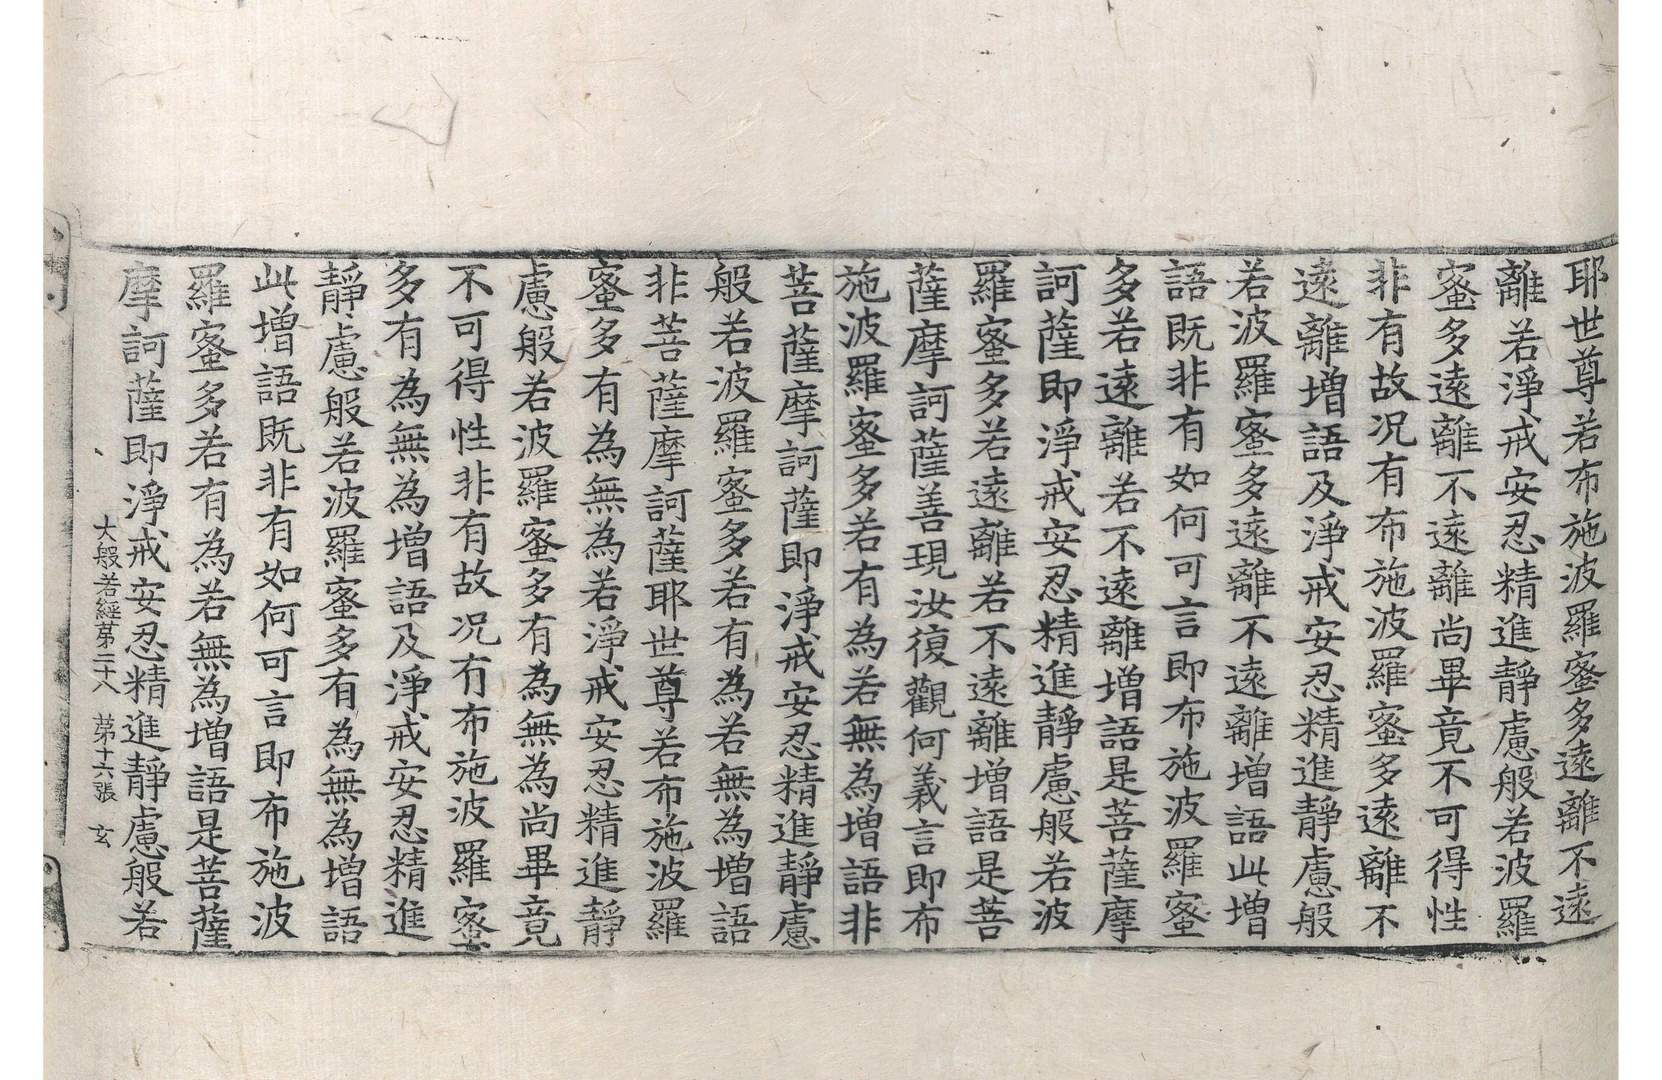 耶世尊若布施波羅蜜多遠離不遠
離若淨戒安忍精進靜慮般若波羅
蜜多遠離不遠離尚畢竟不可得性
非有故况有布施波羅蜜多遠離不
遠離增語及淨戒安忍精進靜慮般
若波羅蜜多遠離不遠離增語此增
語既非有如何可言即布施波羅蜜
多若遠離若不遠離增語是菩薩摩
訶薩即淨戒安忍精進靜慮般若波
羅蜜多若遠離若不遠離增語是菩
薩摩訶薩善現汝復觀何義言即布
施波羅蜜多若有為若無為增語非
菩薩摩訶薩即淨戒安忍精進靜慮
般若波羅蜜多若有為若無為增語
非菩薩摩訶薩耶世尊若布施波羅
蜜多有為無為若淨戒安忍精進靜
慮般若波羅蜜多有為無為尚畢竟
不可得性非有故况有布施波羅蜜
多有為無為增語及淨戒安忍精進
靜慮般若波羅蜜多有為無為增語
此增語既非有如何可言即布施波
羅蜜多若有為若無為增語是菩薩
摩訶薩即淨戒安忍精進靜慮般若
大般若經第二十八 第十六張 玄